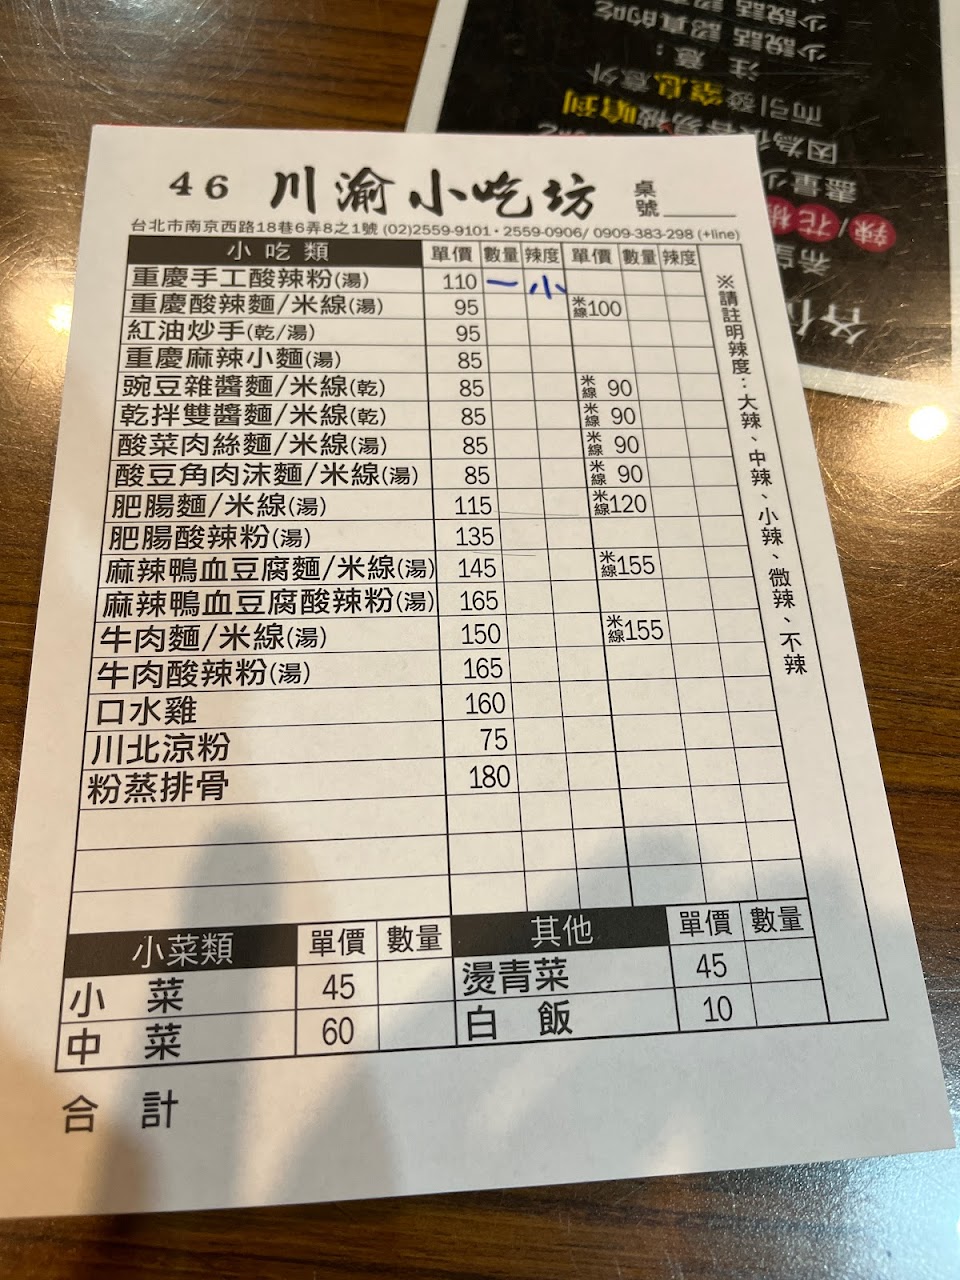 46 川渝小吃坊 桌號
台北市南京西路18巷6弄8之1號 (02)2559-9101・2559-0906/ 0909-383-298 (+line)
小吃類 單價 數量 辣度 單價 數量 辣度
重慶手工酸辣粉(湯) 110 一 小
重慶酸辣麵/米線(湯) 95 米線100
紅油炒手(乾/湯) 95
重慶麻辣小麵(湯) 85
豌豆雜醬麵/米線(乾) 85 米線 90
乾拌雙醬麵/米線(乾) 85 米線 90
酸菜肉絲麵/米線(湯) 85 米線 90
酸豆角肉沫麵/米線(湯) 85 米線 90
肥腸麵/米線(湯) 115 米線120
肥腸酸辣粉(湯) 135
麻辣鴨血豆腐麵/米線(湯) 145 米線155
麻辣鴨血豆腐酸辣粉(湯) 165
牛肉麵/米線(湯) 150 米線155
牛肉酸辣粉(湯) 165
口水雞 160
川北涼粉 75
粉蒸排骨 180
※請註明辣度：大辣、中辣、小辣、微辣、不辣
小菜類 單價 數量 其他 單價 數量
小菜 45 燙青菜 45
中菜 60 白飯 10
合計
辣/花椒
盡量少
因為
而引發窒息意外
注意：
少說話 認真的吃
少說話